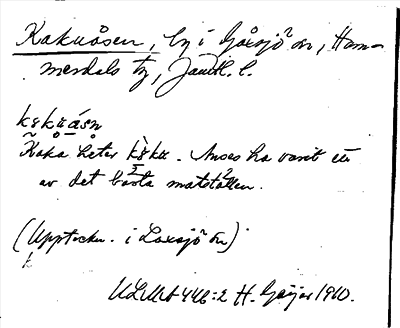 Kakuåsen, by i Gåxsjö sn, Ham-
merdals tg, Jämtl. l.
kʒkuåsn
Kaka heter kʒku. Anses ha varit ett
av det bästa matställen.
(Uppteckn. i Laxsjö sn)
ULMA 446:2 H. Geijer 1910.